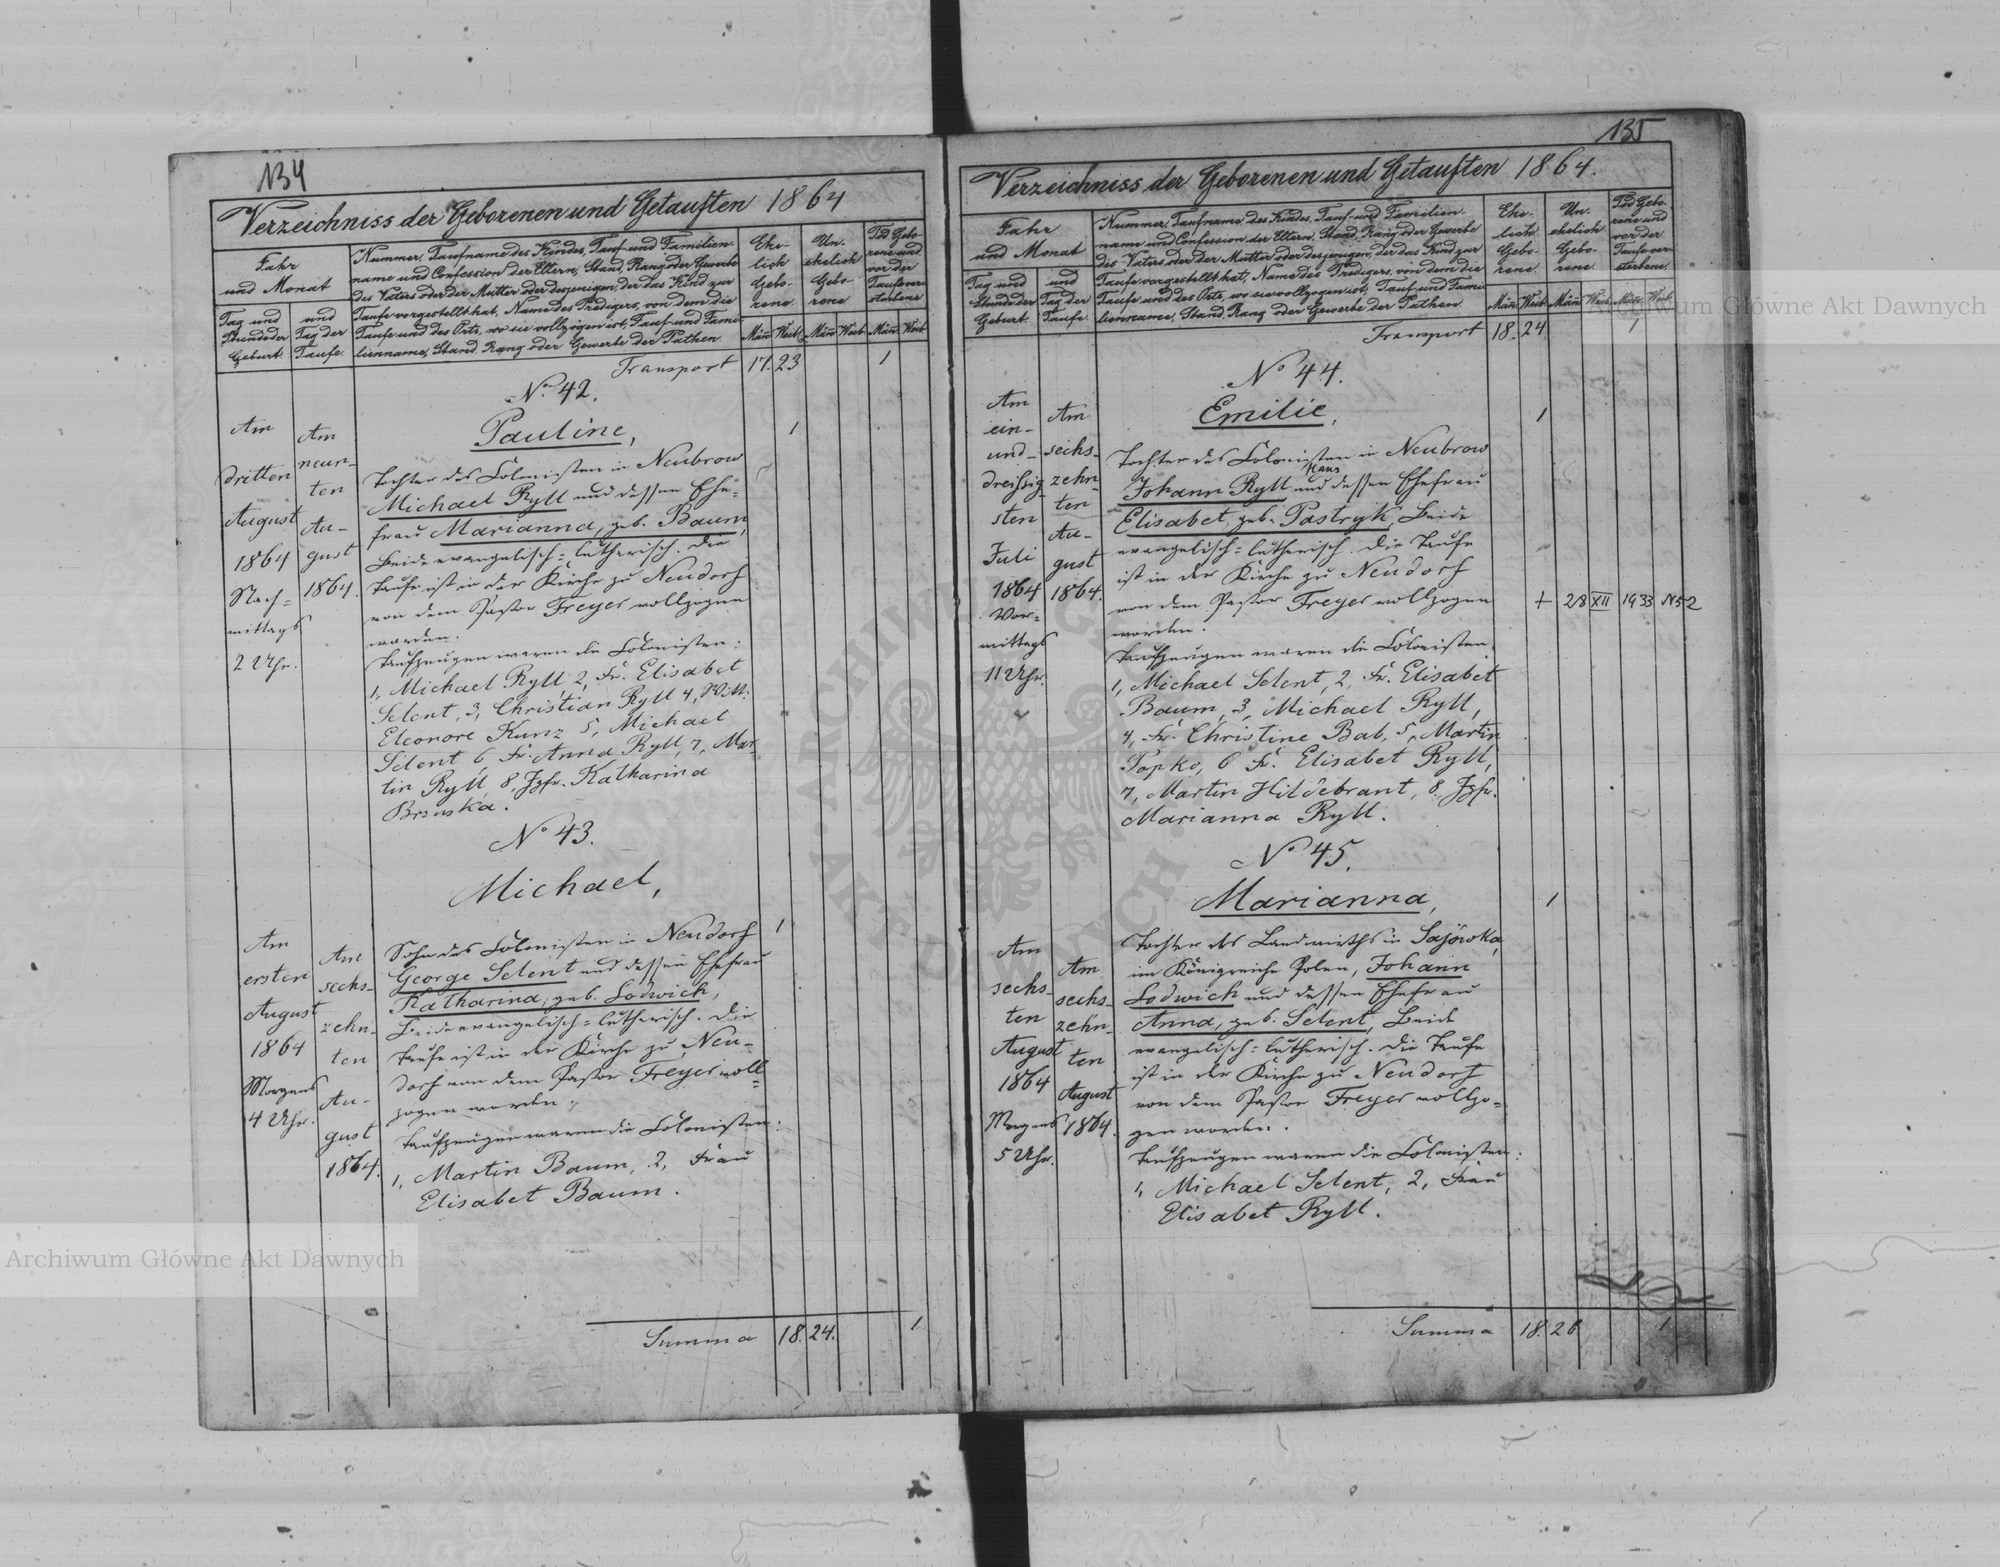 134
Verzeichniss der Geborenen und Getauften 1864
Jahr
und Monat
Tag und
Stunde der
Geburt.
und
Tag der
Taufe.
Nummer, Taufname des Kindes, Tauf- und Familien-
name und Confession der Eltern, Stand, Rang oder Gewerbe
des Vaters oder der Mutter oder desjenigen, der das Kind zur
Taufe vorgestellt hat, Name des Predigers, von dem die
Taufe und des Orts, wo sie vollzogen ist, Tauf und Fami-
lienname, Stand, Rang oder Gewerbe der Pathen.
Ehe-
lich
Gebo-
rene.
Un-
ehelich
Gebo-
rene
Tod Gebo-
rene und
vor der
Taufe ver-
storbene
Män̄ Weib. Män̄ Weib Män̄ Weib
Transport 17. 23 1
No 42.
Pauline, 1
Am
dritten
August
1864
Nach-
mittags
2 Uhr.
Am
neun-
ten
Au-
gust
1864.
Tochter des Colonisten in Neubrow
Michael Ryll und dessen Ehe-
frau Marianna, geb. Baum,
Beide evangelisch-lutherisch. Die
Taufe ist in der Kirche zu Neudorf
von dem Pastor Freyer vollzogen
worden.
Taufzeugen waren die Colonisten:
1, Michael Ryll 2, Fr. Elisabet
Selent, 3, Christian Ryll 4, Witt.
Eleonore Kunz 5, Michael
Selent 6, Fr. Anna Ryll, 7, Mar-
tin Ryll, 8, Jgfr. Katharina
Bruska.
No 43.
Michael,
Am
ersten
August
1864
Morgens
4 Uhr.
Am
sechs-
zehn-
ten
Au-
gust
1864.
Sohn des Colonisten in Neudorf 1
George Selent und dessen Ehefrau
Katharina, geb. Lodwich,
Beide evangelisch-lutherisch. Die
Taufe ist in der Kirche zu Neu-
dorf von dem Pastor Freyer voll-
zogen worden.
Taufzeugen waren die Colonisten:
1, Martin Baum, 2, Frau
Elisabet Baum.
Summa 18. 24. 1
135
Verzeichniss der Geborenen und Getauften 1864.
Jahr
und Monat
Tag und
Stunde der
Geburt.
und
Tag der
Taufe.
Nummer, Taufname des Kindes, Tauf- und Familien-
name und Confession der Eltern, Stand, Rang oder Gewerbe
des Vaters oder der Mutter oder desjenigen, der das Kind zur
Taufe vorgestellt hat, Name des Predigers, von dem die
Taufe und des Orts, wo sie vollzogen ist, Tauf und Fami-
lienname, Stand, Rang oder Gewerbe der Pathen.
Ehe-
lich
Gebo-
rene.
Un-
ehelich
Gebo-
rene.
Tod Gebo-
rene und
vor der
Taufe ver-
storbene.
Män̄ Weib. Män̄ Weib. Män̄ Weib.
Transport 18. 24 1
No 44.
Emilie, 1
Am
ein-
und-
dreissig-
sten
Juli
1864
Vor-
mittags
11 Uhr.
Am
sechs-
zehn-
ten
Au-
gust
1864.
Tochter des Colonisten in Neubrow
Hans
Johann Ryll und dessen Ehefrau
Elisabet, geb. Pastryk, Beide
evangelisch-lutherisch. Die Taufe
ist in der Kirche zu Neudorf
von dem Pastor Freyer vollzogen + 28 XII 1933 N52
worden.
Taufzeugen waren die Colonisten:
1, Michael Selent, 2, Fr. Elisabet
Baum, 3, Michael Ryll,
4, Fr. Christine Bab, 5, Martin
Popko, 6 Fr. Elisabet Ryll,
7, Martin Hildebrant, 8, Jgfr.
Marianna Ryll.
No 45.
Marianna, 1
Am
sechs-
ten
August
1864
Morgens
5 Uhr.
Am
sechs-
zehn-
ten
August
1864.
Tochter des Landwirths in Sajówka,
im Königreiche Polen, Johann
Lodwich und dessen Ehefrau
Anna, geb. Selent, Beide
evangelisch-lutherisch. Die Taufe
ist in der Kirche zu Neudorf
von dem Pastor Freyer vollzo-
gen worden.
Taufzeugen waren die Colonisten:
1, Michael Selent, 2, Frau
Elisabet Ryll.
Summa 18. 26 1
Archiwum Główne Akt Dawnych
Archiwum Główne Akt Dawnych